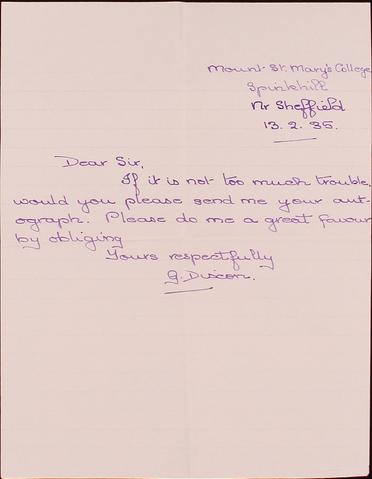 Mount St. Mary's College
Spinkhill
Nr Sheffield
13.2.35.
Dear Sir,
If it is not too much trouble,
would you please send me your aut-
ograph. Please do me a great favour
by obliging
Yours respectfully
G. Dixon.